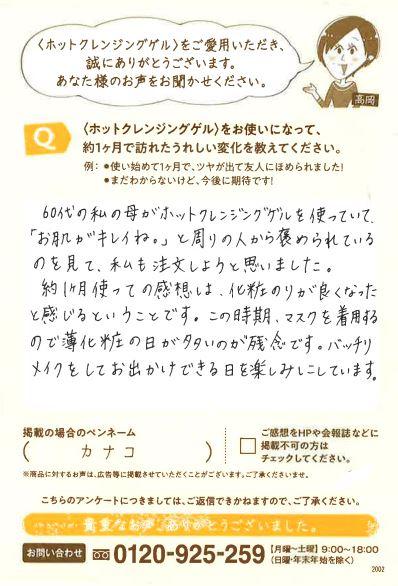 〈ホットクレンジングゲル〉をご愛用いただき、
誠にありがとうございます。
あなた様のお声をお聞かせください。
高岡
Q
〈ホットクレンジングゲル〉をお使いになって、
約1ヶ月で訪れたうれしい変化を教えてください。
例：●使い始めて1ヶ月で、ツヤが出て友人にほめられました!
●まだわからないけど、今後に期待です!
60代の私の母がホットクレンジングゲルを使っていて、
「お肌がキレイね。」と周りの人から褒められている
のを見て、私も注文しようと思いました。
約1ヶ月使っての感想は、化粧のりが良くなった
と感じるということです。この時期、マスクを着用する
ので薄化粧の日が多いのが残念です。バッチリ
メイクをしてお出かけできる日を楽しみにしています。
掲載の場合のペンネーム
( カナコ )
ご感想をHPや会報誌などに
掲載不可の方は
チェックしてください。
※商品に対するお声は、広告等に掲載させていただくことがございます。ご了承くださいませ。
こちらのアンケートにつきましては、ご返信できかねますので、ご了承ください。
貴重なお声、ありがとうございました。
お問い合わせ 0120-925-259 [月曜〜土曜] 9:00〜18:00
(日曜・年末年始を除く)
2002